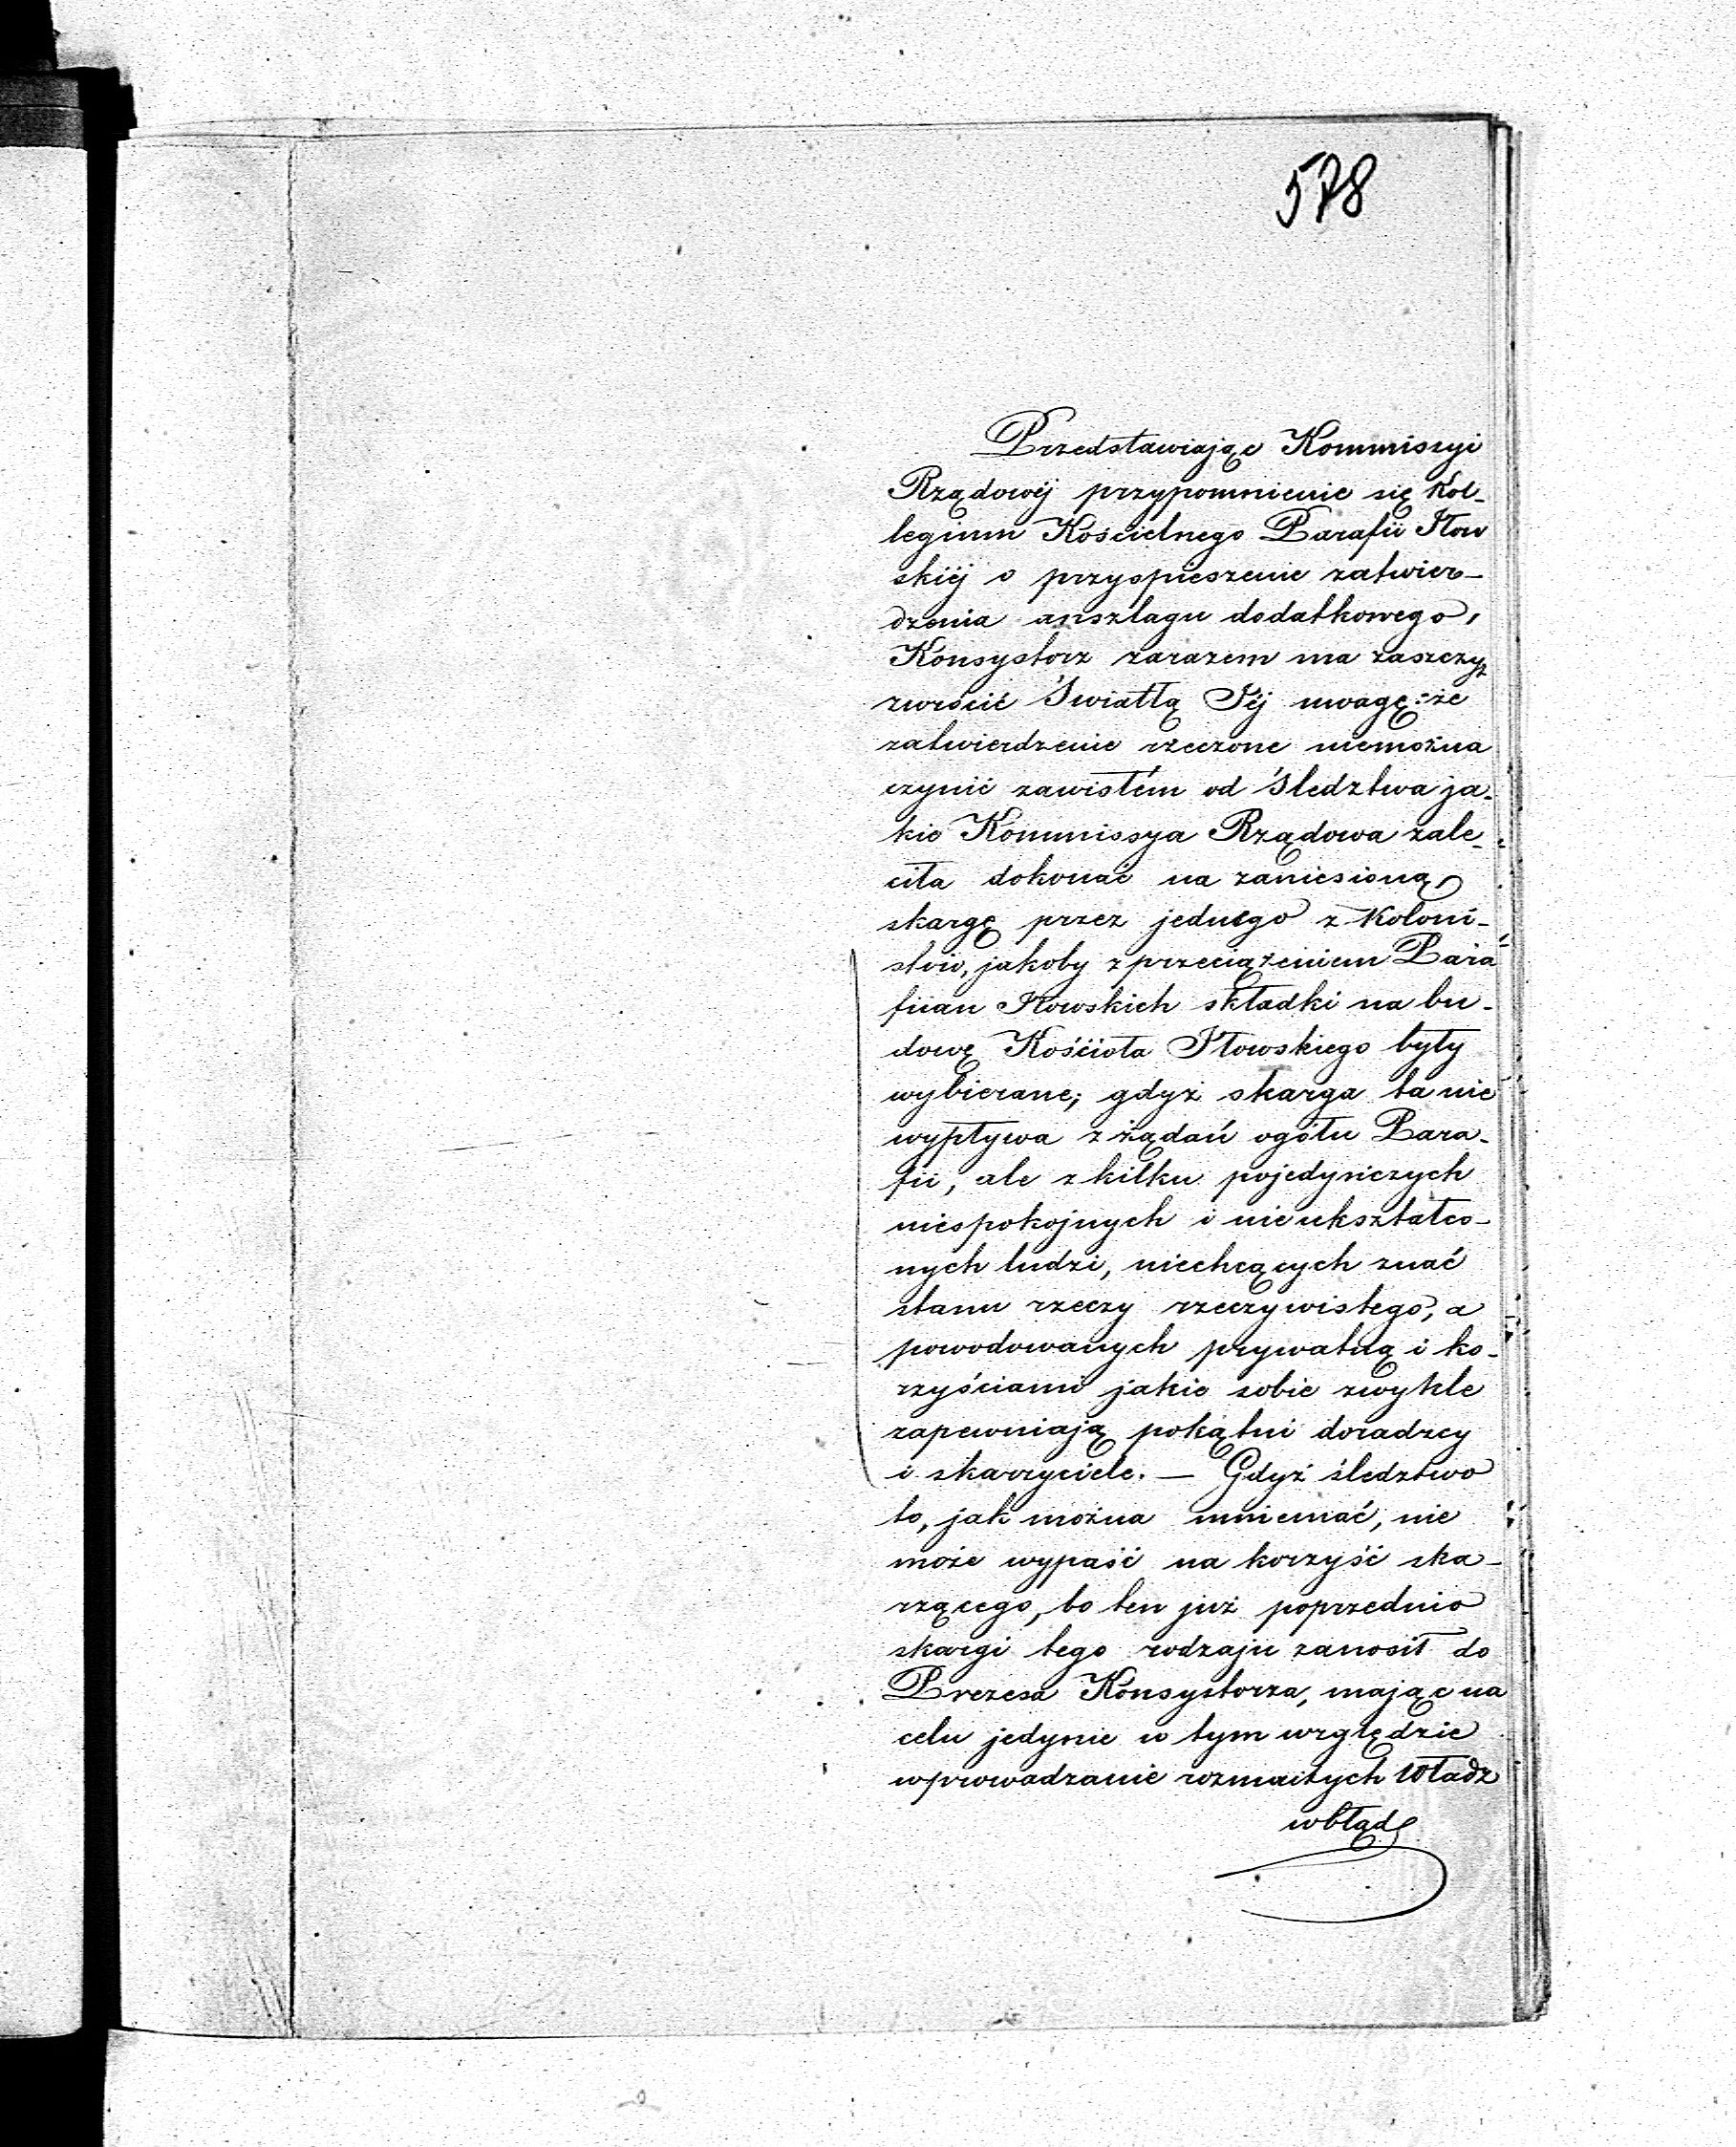 578
Przedstawiając Kommiszyi
Rządowéj przypomnienie się Kol-
legium Kościelnego Parafii Iłow
skiéj o przyspieszenie zatwier-
dzenia anszlagu dodatkowego,
Konsystorz zarazem ma zaszczyt
zwrócić Światłą Jéj uwagę: że
zatwierdzenie rzeczone niemożna
czynić zawisłém od śledztwa ja-
kie Kommissya Rządowa zale-
ciła dokonać na zaniesioną
skargę przez jednego z Koloni-
stów, jakoby z przeciążeniem Para
fian Iłowskich składki na bu-
dowę Kościoła Iłowskiego były
wybierane; gdyż skarga ta nie
wypływa z żądań ogółu Para-
fii, ale z kilku pojedyńczych
niespokojnych i nieukształco-
nych ludzi, niechcących znać
stanu rzeczy rzeczywistego, a
powodowanych prywatną i ko-
rzyściami jakie sobie zwykle
zapewniają pokątni doradzcy
i skarzyciele. — Gdyż śledztwo
to, jak można mniemać, nie
może wypaść na korzyść ska-
rzącego, bo ten już poprzednio
skargi tego rodzaju zanosił do
Prezesa Konsystorza, mając na
celu jedynie w tym względzie
wprowadzanie rozmaitych Władz
w błąd